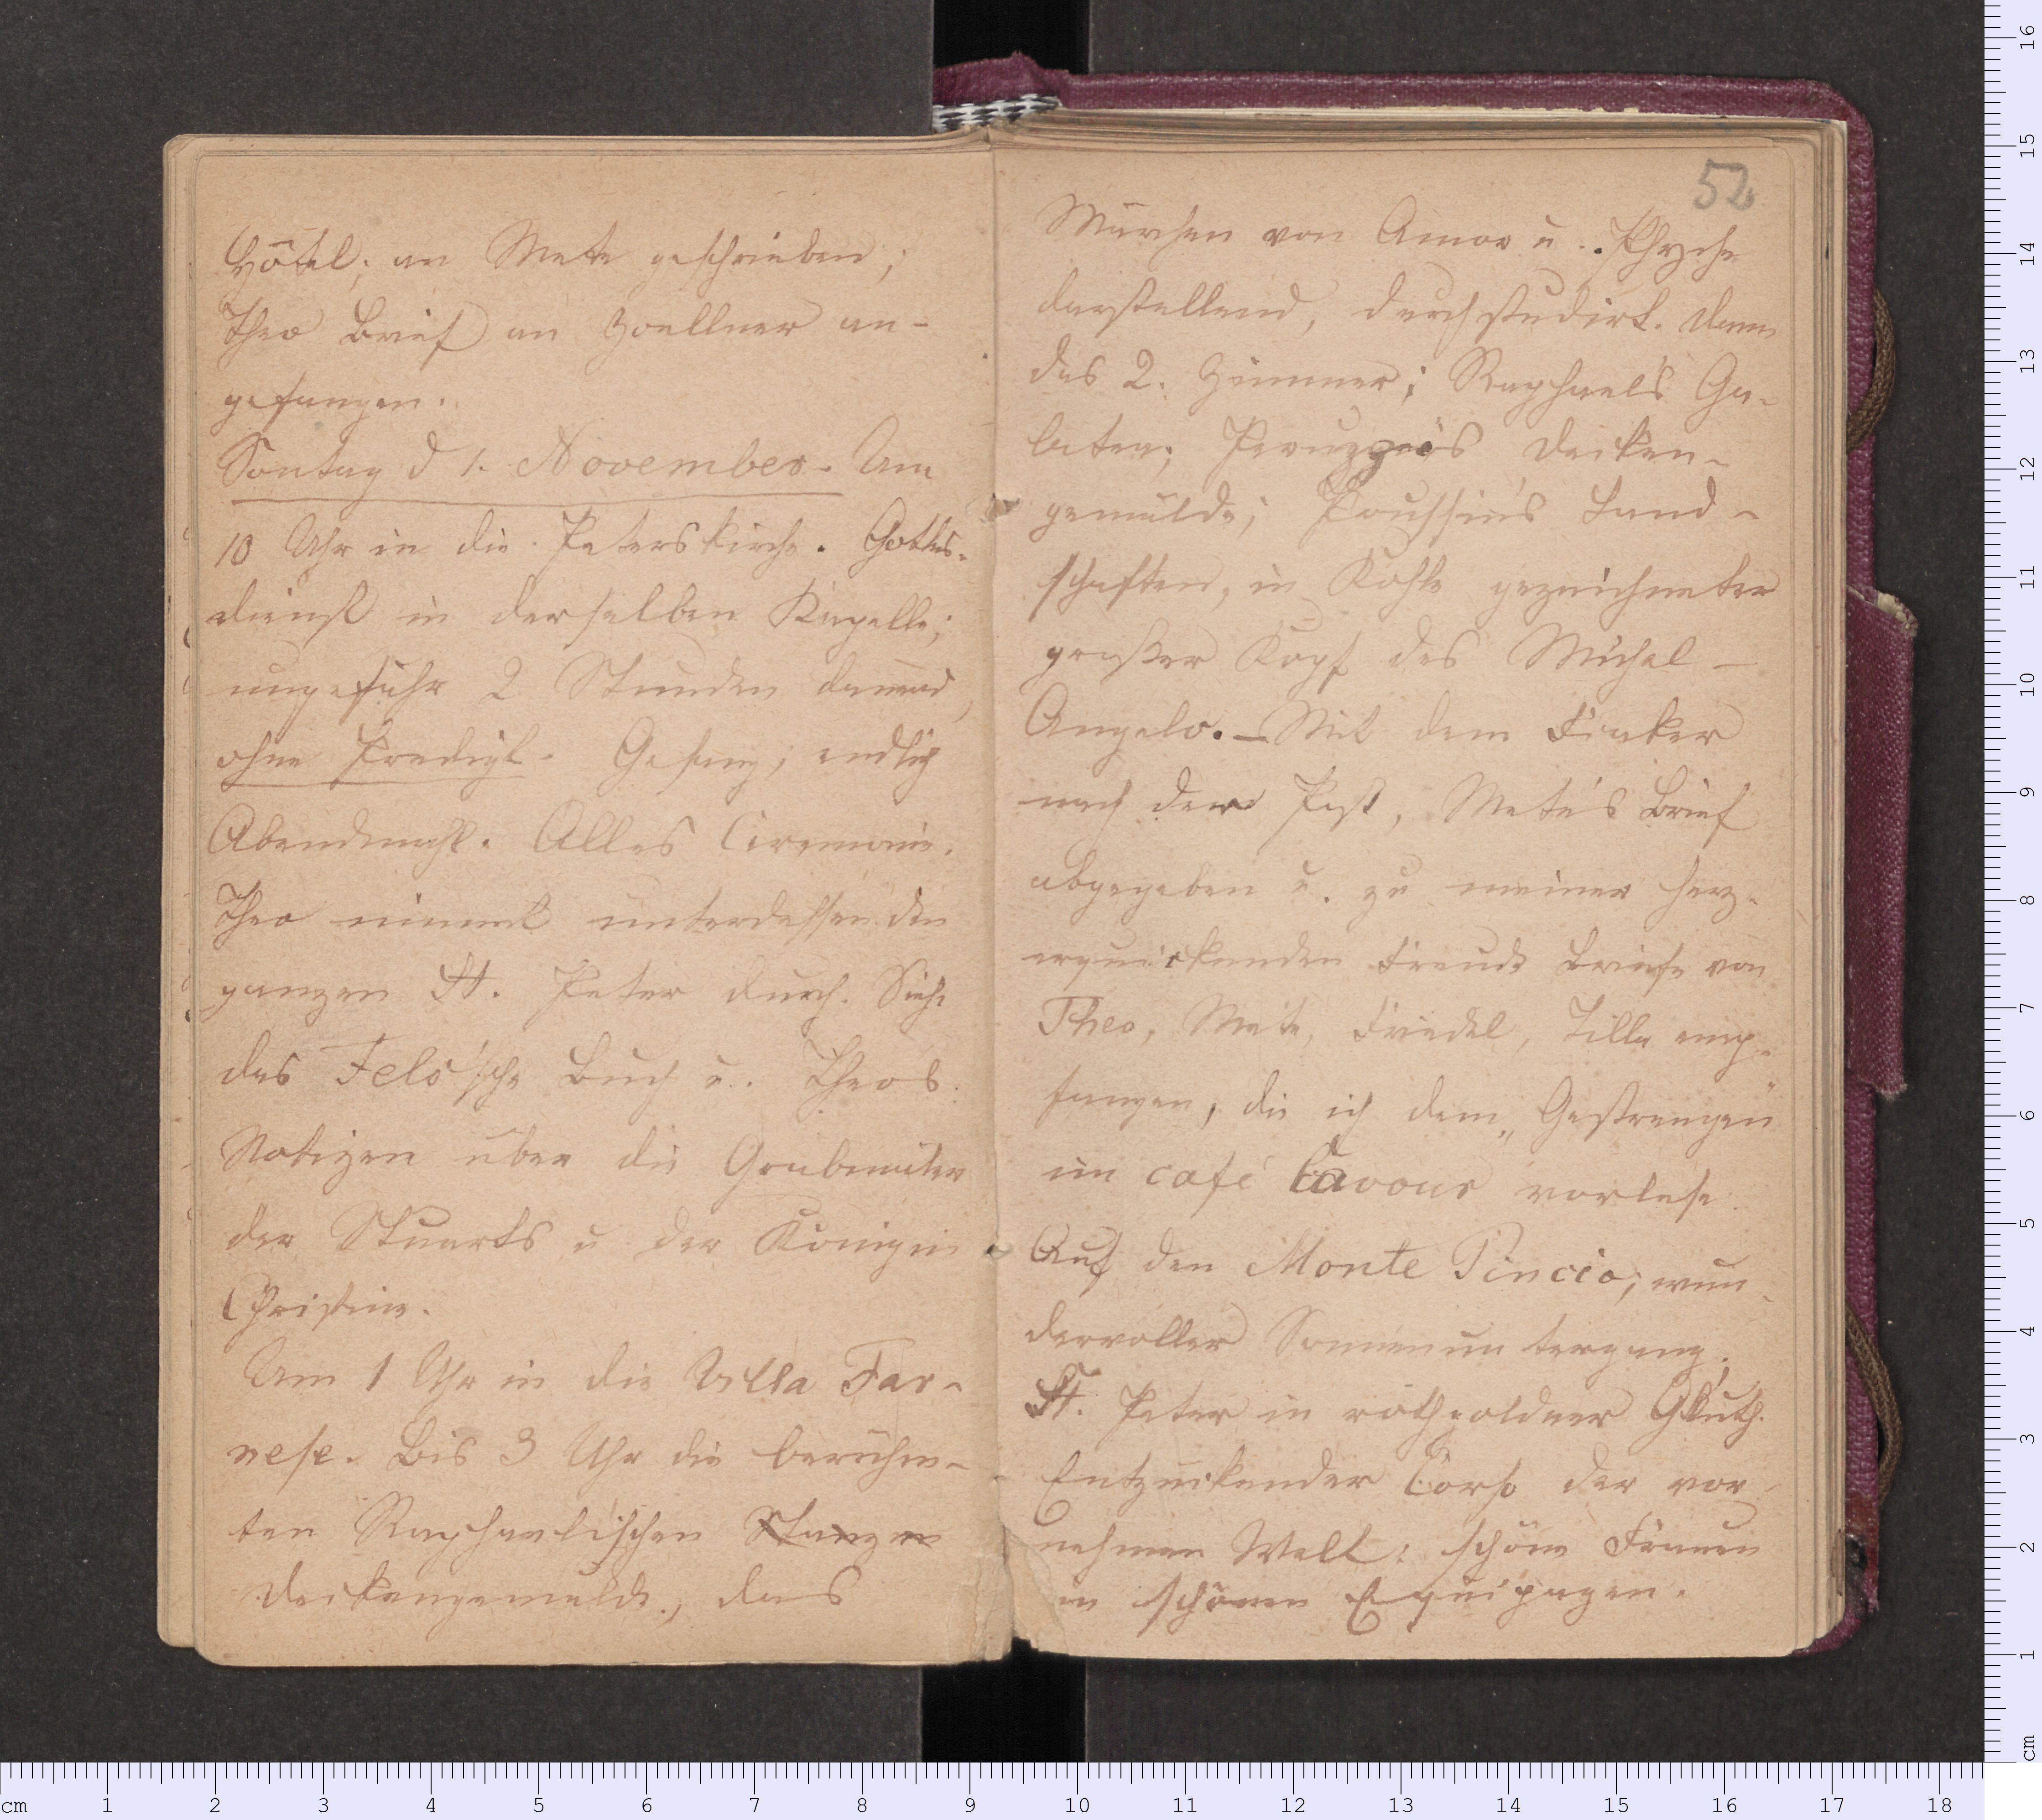 Hôtel; an Mete geschrieben;
Theo Brief an Zoellner an-
gefangen.
Sontag d 1. November. Um
10 Uhr in die Peterskirche. Gottes-
dienst in derselben Kapelle;
ungefähr 2 Stunden dauernd,
ohne Predigt. Gesang; endlich
Abendmahl. Alles Ceremonie.
Theo nimmt unterdessen den
ganzen St. Peter durch. Siehe
das Fels'sche Buch u. Theos
Notizen über die Grabmäler
der Stuarts u der Königin
Christine.
Um 1 Uhr in die Villa Far-
nese. Bis 3 Uhr die berühm-
ten Raphaelischen Stanzen
Deckengemälde, das
52
Märchen von Amor u. Phyche
darstellend, durchstudirt. Dann
das 2. Zimmer; Raphael's Ga-
latea; Peruzzis Decken-
gemälde; Poussin's Land-
schaften, in Kohle gezeichneter
großer Kopf des Michel-
Angelo. – Mit dem Fiaker
nach der Post, Mete's Brief
abgegeben u. zu meiner herz-
erquickenden Freude Briefe von
Theo, Mete, Friedel, Tilla emp-
fangen, die ich dem „Gestrengen"
im café Cavour vorlese.
Auf den Monte Pincio; wun-
dervoller Sonnenuntergang.
St. Peter in rothgoldner Gluth.
Entzückender Corso der vor-
nehmen Welt: schöne Frauen
in schönen Equipagen.
cm 1 2 3 4 5 6 7 8 9 10 11 12 13 14 15 16 17 18
cm 1 2 3 4 5 6 7 8 9 10 11 12 13 14 15 16